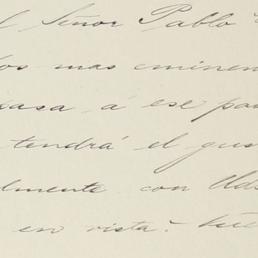 Señor Pablo
mas eminen
pasa á ese pa
tendrá el gus
lmente con Uds
en vista.